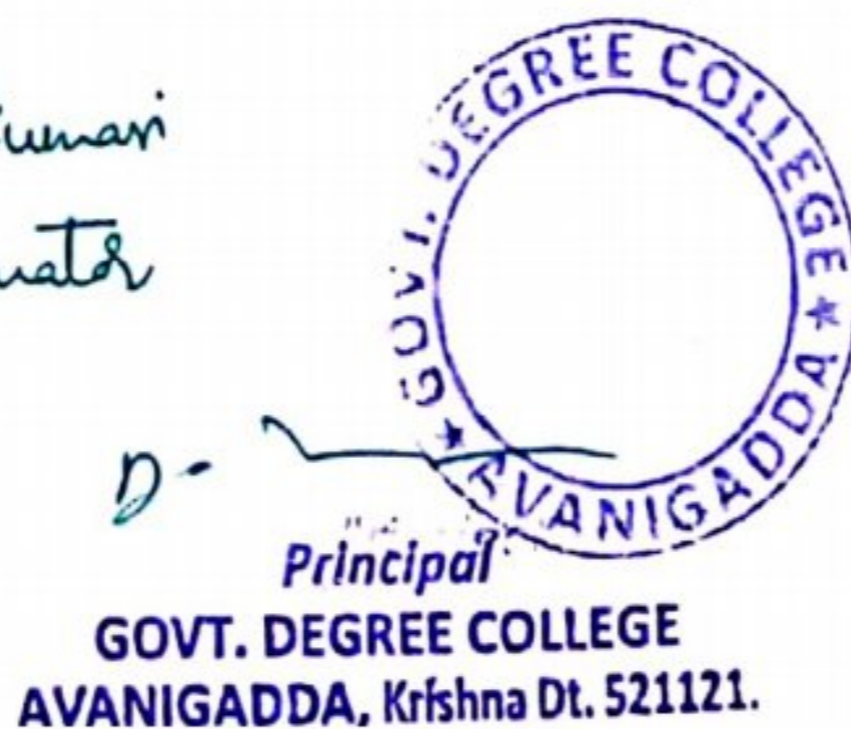 GOVT. DEGREE COLLEGE
★ AVANIGADDA ★
D-
Principal
GOVT. DEGREE COLLEGE
AVANIGADDA, Krishna Dt. 521121.